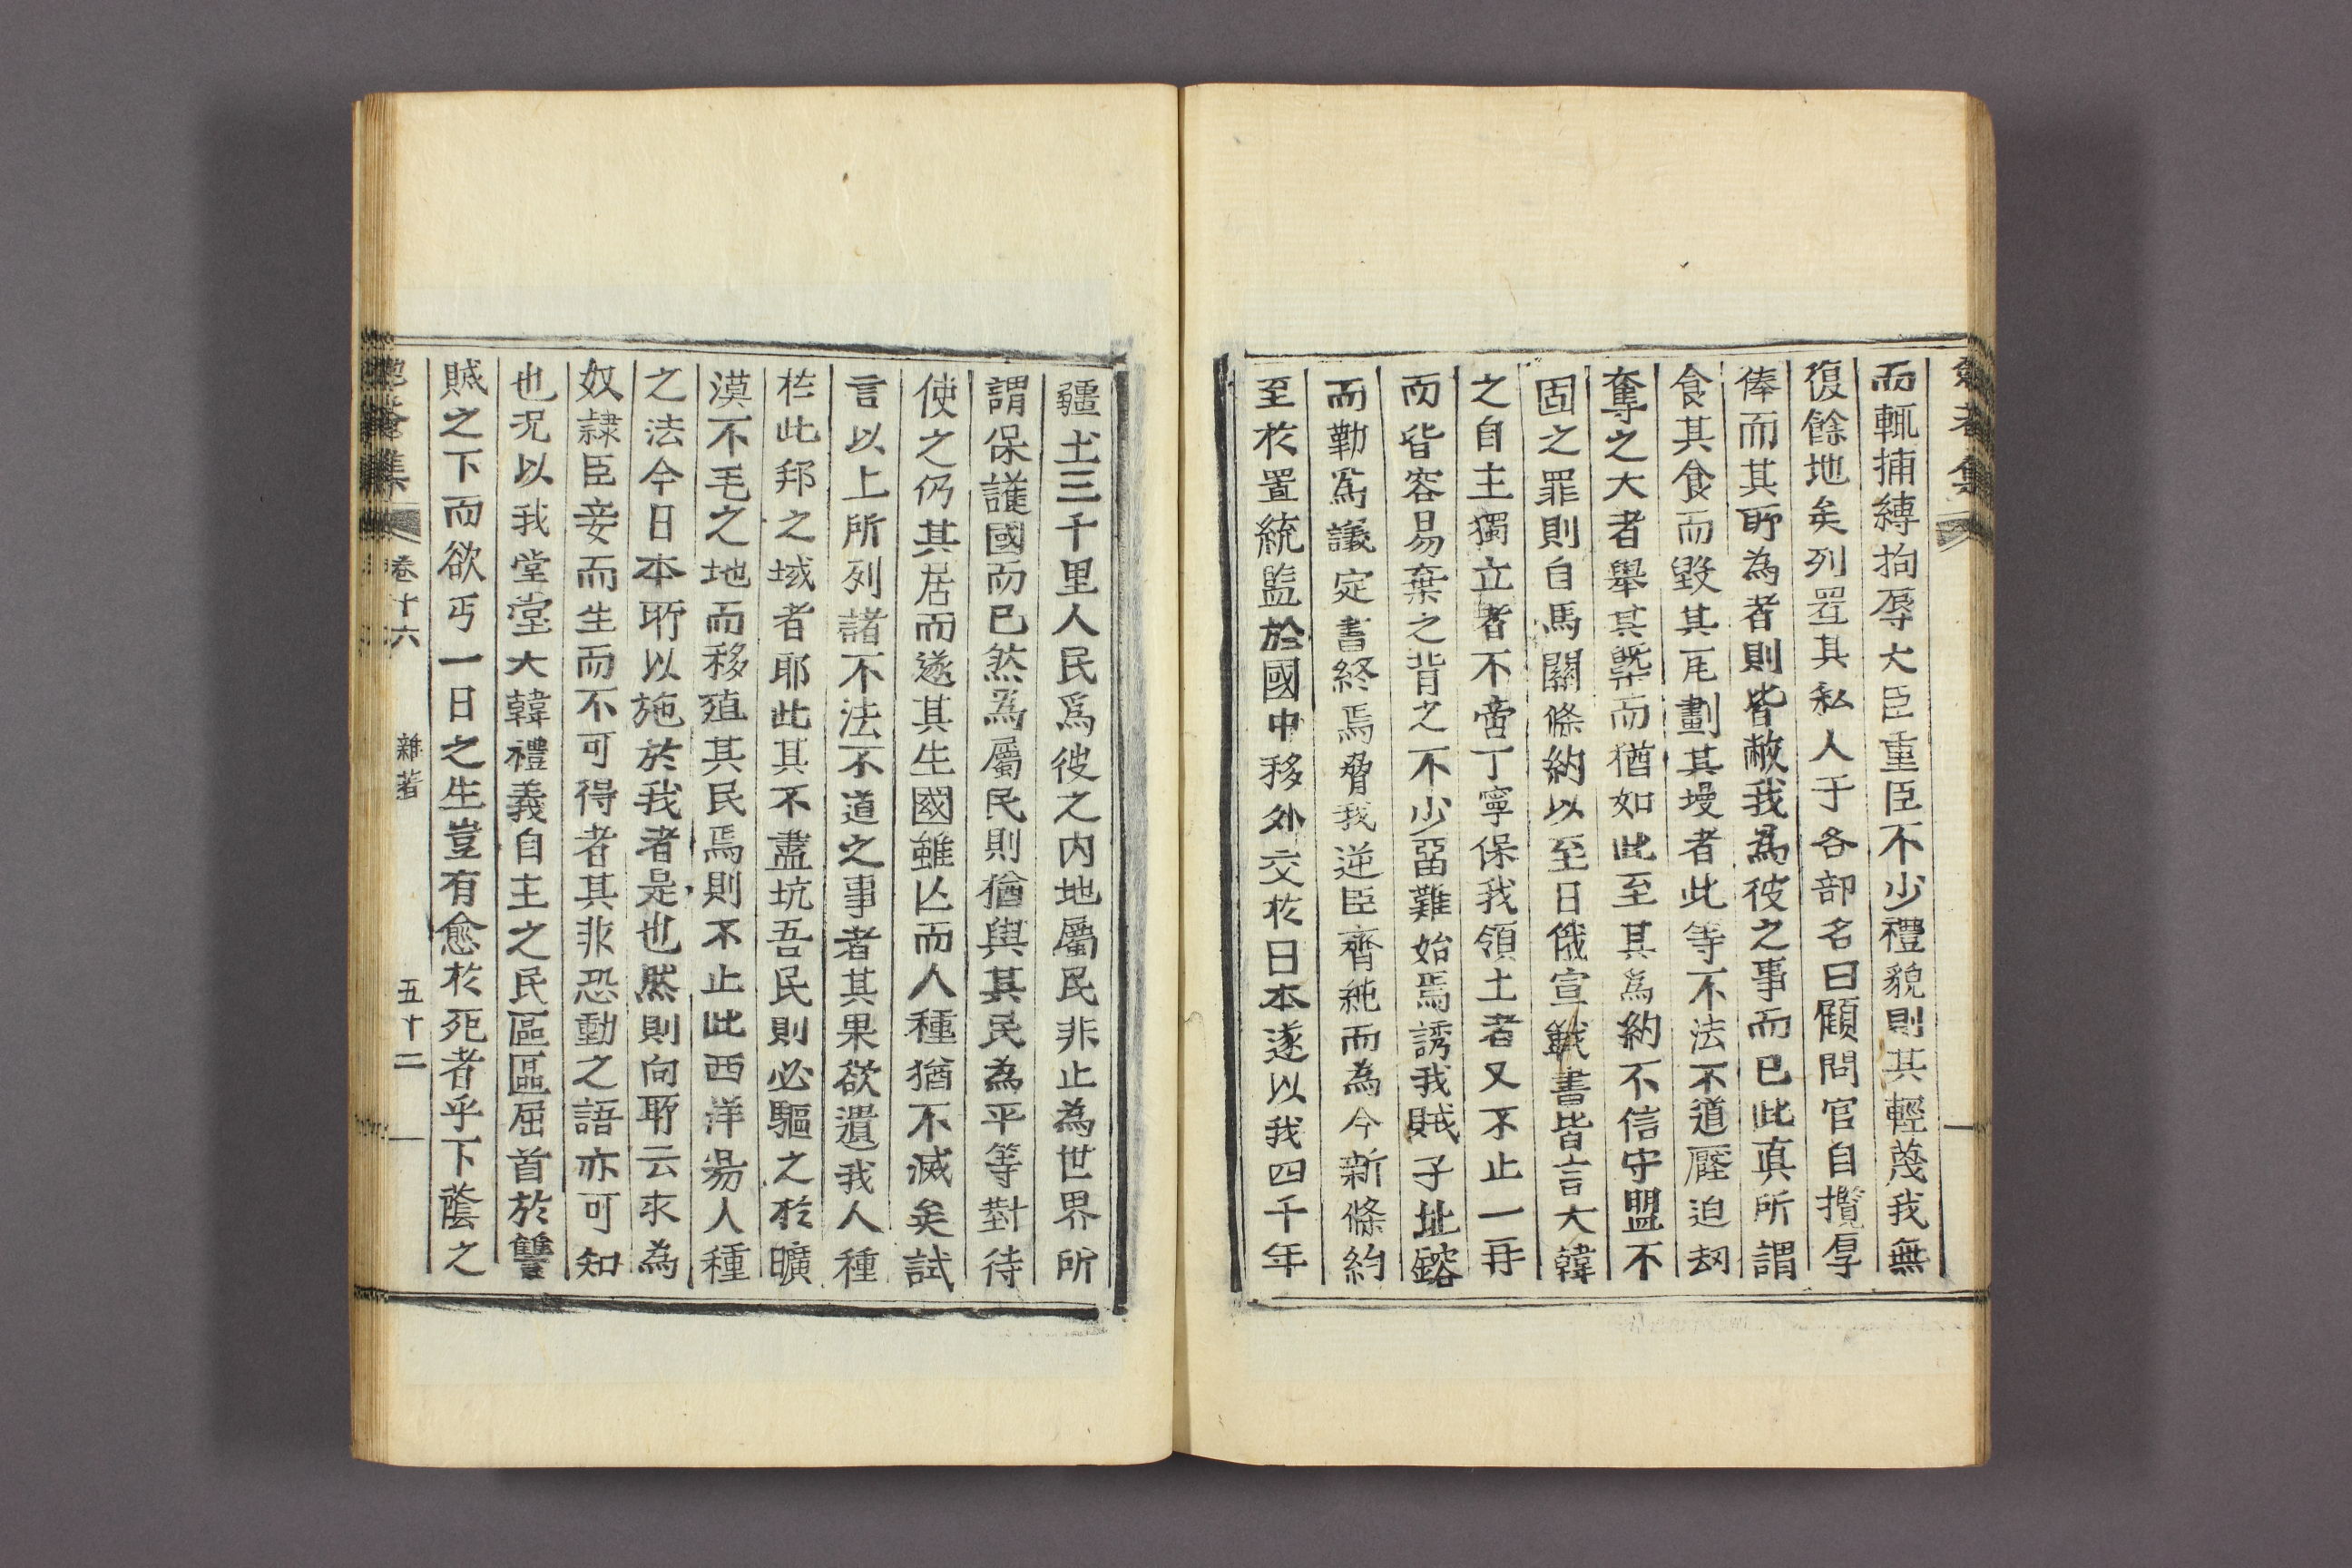 而輒捕縛拘辱大臣重臣不少禮貌則其輕蔑我無
復餘地矣列置其私人于各部名曰顧問官自攬厚
俸而其所為者則皆敝我為彼之事而已此真所謂
食其食而毀其瓦劃其墁者此等不法不道壓迫刼
奪之大者舉其槩而猶如此至其為約不信守盟不
固之罪則自馬關條約以至日俄宣戰書皆言大韓
之自主獨立者不啻丁寧保我領土者又不止一再
而皆容易棄之背之不少留難始焉誘我賊子址鎔
而勒爲議定書終焉脅我逆臣齊純而為今新條約
至於置統監於國中移外交於日本遂以我四千年
疆土三千里人民爲彼之內地屬民非止為世界所
謂保護國而已然爲屬民則猶與其民為平等對待
使之仍其居而遂其生國雖亾而人種猶不滅矣試
言以上所列諸不法不道之事者其果欲遺我人種
於此邦之域者耶此其不盡坑吾民則必驅之於曠
漠不毛之地而移殖其民焉則不止此西洋昜人種
之法今日本所以施於我者是也然則向所云求為
奴隷臣妾而生而不可得者其非恐動之語亦可知
也況以我堂堂大韓禮義自主之民區區屈首於讐
賊之下而欲丐一日之生豈有愈於死者乎下蔭之
菴集 卷十六 雜著 五十二